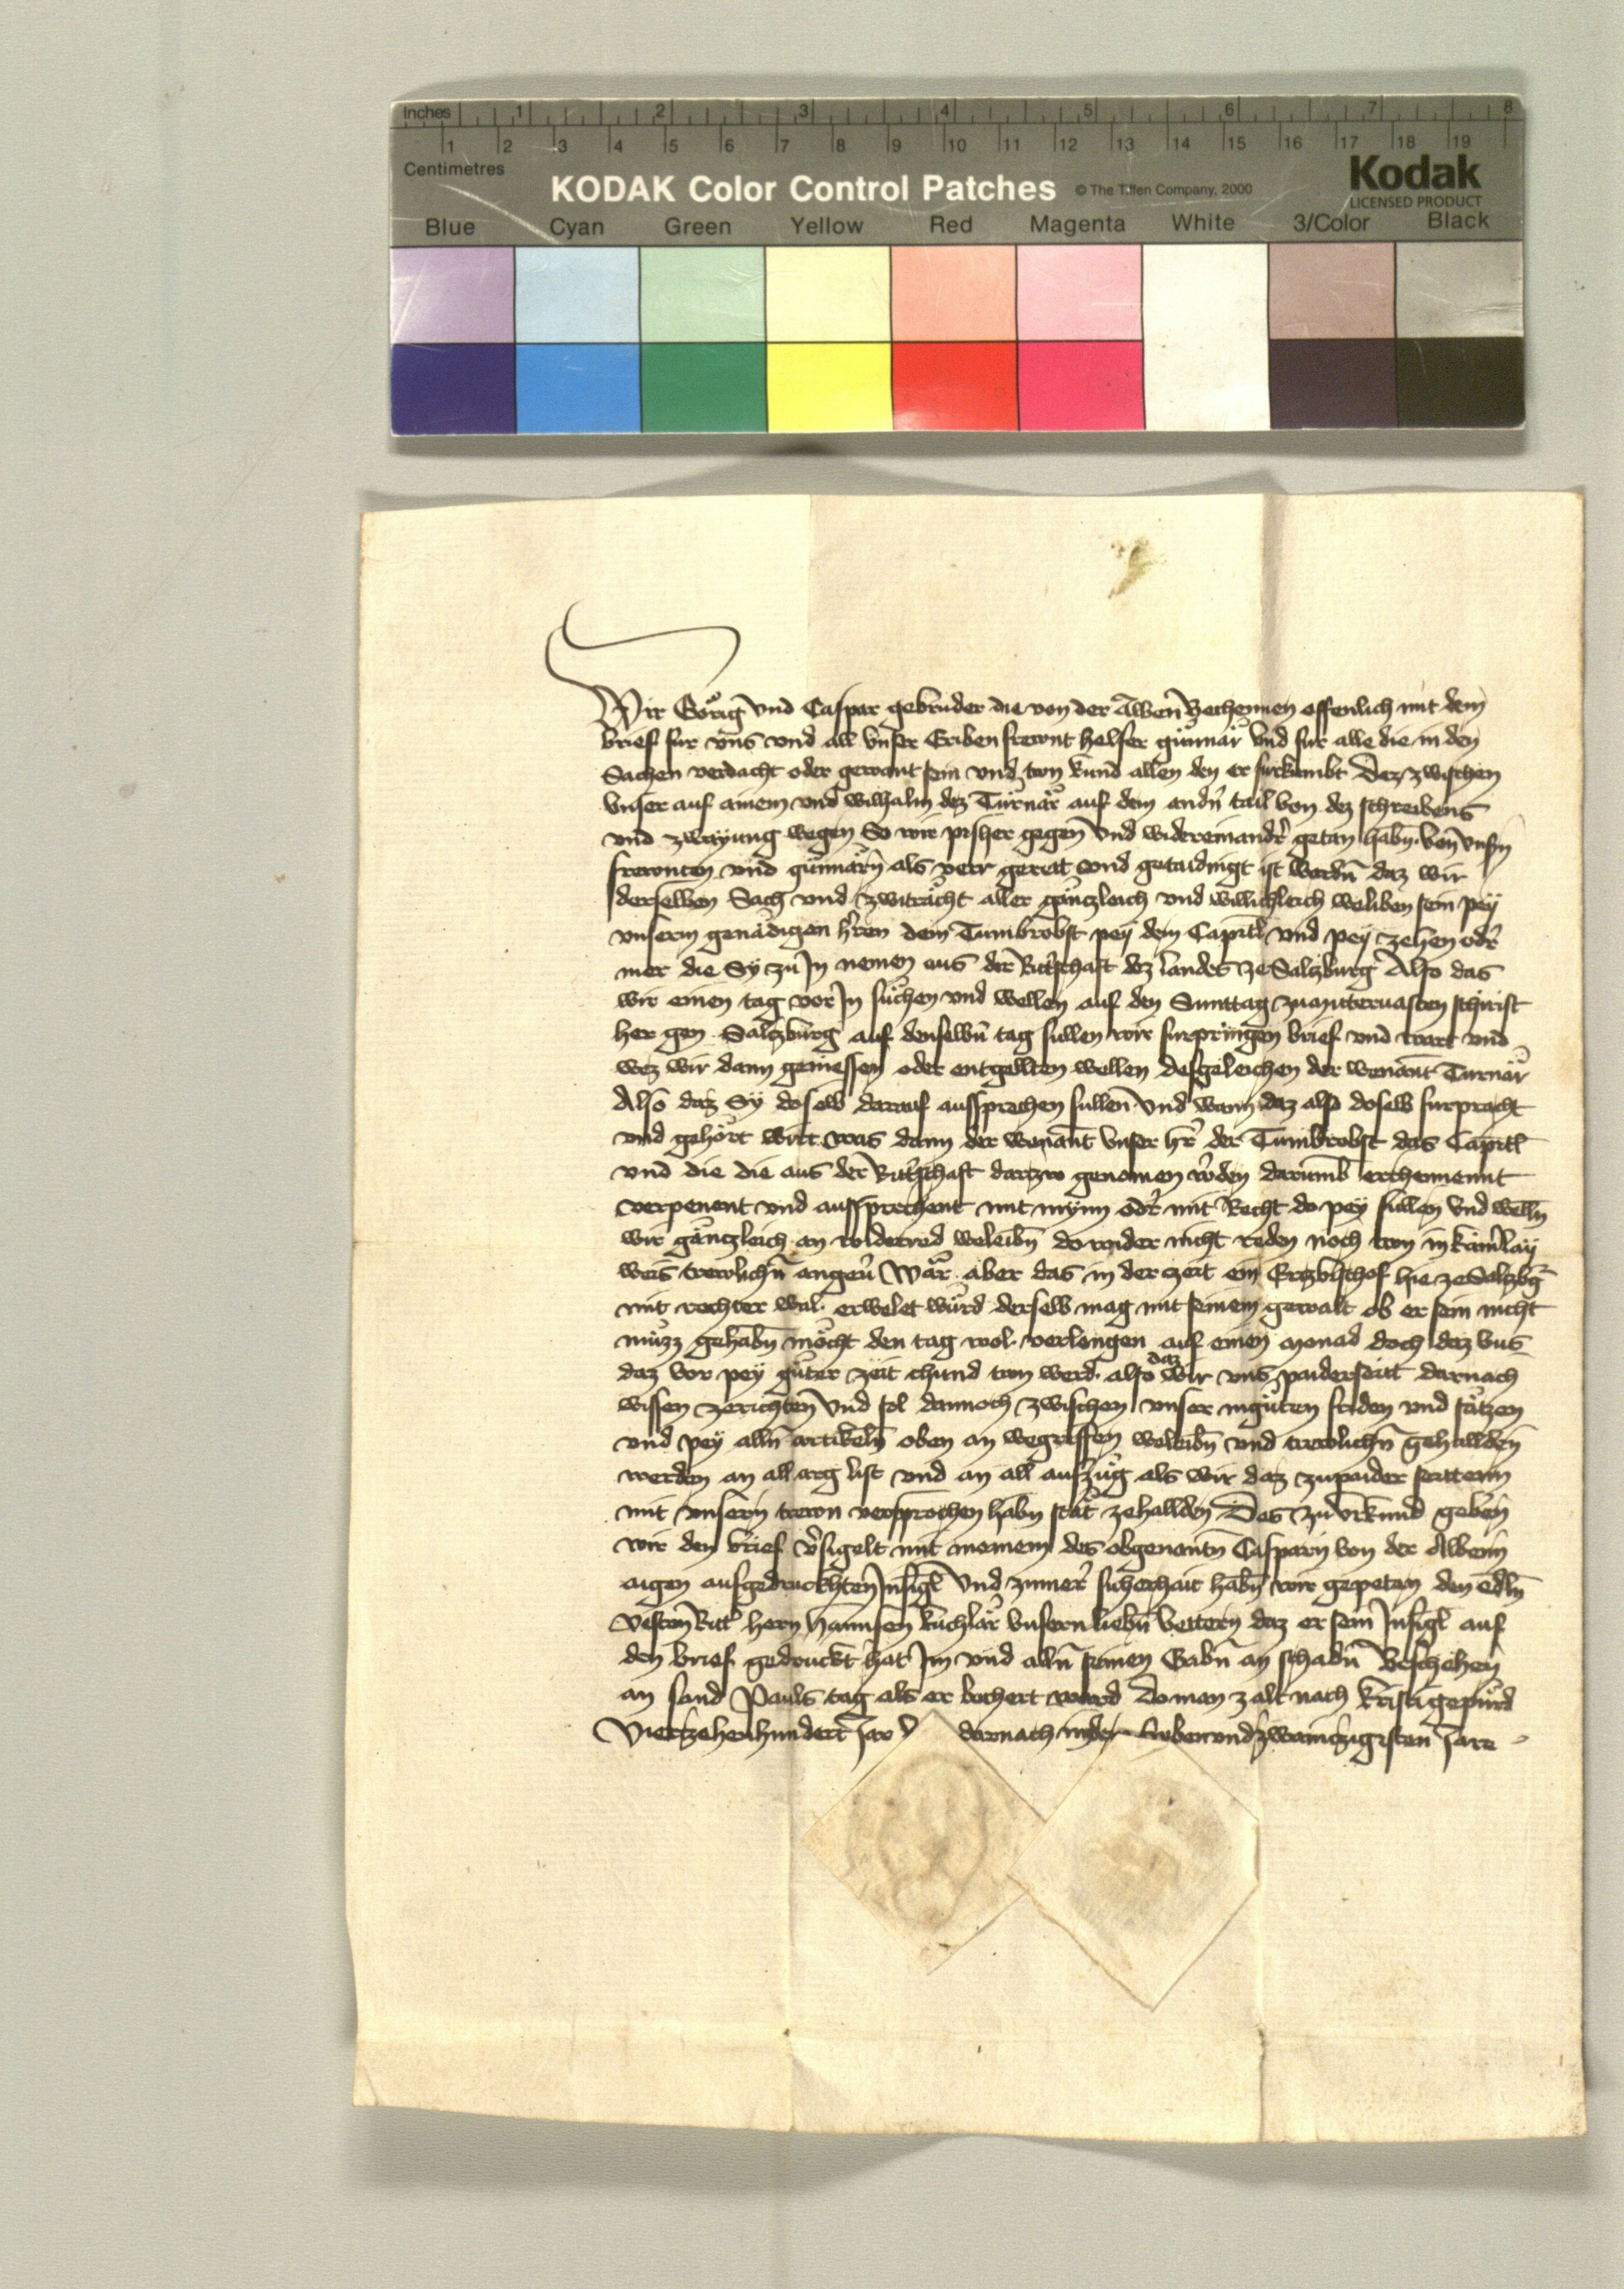 Inches 1 2 3 4 5 6 7 8
1 2 3 4 5 6 7 8 9 10 11 12 13 14 15 16 17 18 19
Centimetres
KODAK Color Control Patches © The Tiffen Company, 2000 Kodak
LICENSED PRODUCT
Blue Cyan Green Yellow Red Magenta White 3/Color Black
Wir Görig vnd Caspar gebruder die von der Alben Bechennen offenlich mit dem
brief fur vns vnd all vnser Eriben frewnt helfer günnär vnd fur alle die in den
Sachen verdacht oder gewant sein vnd tun kund allen den er furkumbt Daz zwischen
vnser auf ainem vnd Wilhalm dez Turnär auf dem andn tail von dez schreibens
vnd zwayung wegen So wir pisher gegen vnd widereinandr getan habn von vnsn
frewnten vnd günnärn als verr gerett vnd getaidingt ist wordn daz wir
derselben Sach vnd zwiträcht aller gänczleich vnd willichleich weliben sein pey
vnserm genädigen hren dem Tumbrobst pey dem Capitl vnd pey zehen odr
mer die Sy zu In nemen aus der Rittschaft dez landes ze Salzburg Also das
wir einen tag vor In suchen vnd wellen auf den Sunttag zu mitteruasten schirist
her gen Salczburg auf denselbn tag sullen wir furpringen brief vnd wart vnd
wez wir dann geniessen oder entgellten wellen desgeleichen der wenant Turnär
Also daz Sy doselb darauf aussprechen sullen vnd wann daz also doselb furpracht
vnd gehört wirt was dann der wenant vnser hr der Tumbrobst das Capitl
vnd die die aus der Rittschaft darzw genomen wden darumb erchennennt
verpenent vnd aussprechent mit mynn odr mit Recht do pey sullen vnd welln
wir gänczleich an widerred weleibn do wider nicht reden noch tun in kainlay
weis trewlichn angeu Wär aber das in der czeit ein Erczbischof hie ze Salzbg
mit rechter wal erwelet würd derselb mag mit seinem gewalt ob er sein nicht
müzz gehabn möcht den tag wol verlengen auf einen monad doch daz vns
daz vor pey guter zeit chund tun werd also daz wir vns paiderseitt darnach
wissen zerichten vnd sol dannoch zwischen vnser in guten friden vnd säczen
vnd pey alln artikeln oben an wegriffen weleibn vnd trewlichn gehallden
werden an all arg list vnd an all aufzug als wir daz zu paider seittenn
mit vnsern trewn versprochen habn stät zehallden Des zu vrkund geben
wir den brief vsigelt mit meinem des obgenantn Casparn von der Albenn
aigen aufgedruckhten Insigl vnd zu merr sicherhait habn wir gepeten den edln
vesten Ritt hern Hannsen kuchlär vnsern liebn vettern daz er sein Insigl auf
den brief gedruckt hat Im vnd alln seinen Eribn an schadn Beschehen
an sand Pauls tag als er bechert ward Do man zalt nach kristi gepürd
Vierczehenhundert Jar darnach in dem Sibenvndzwainczigisten Jare